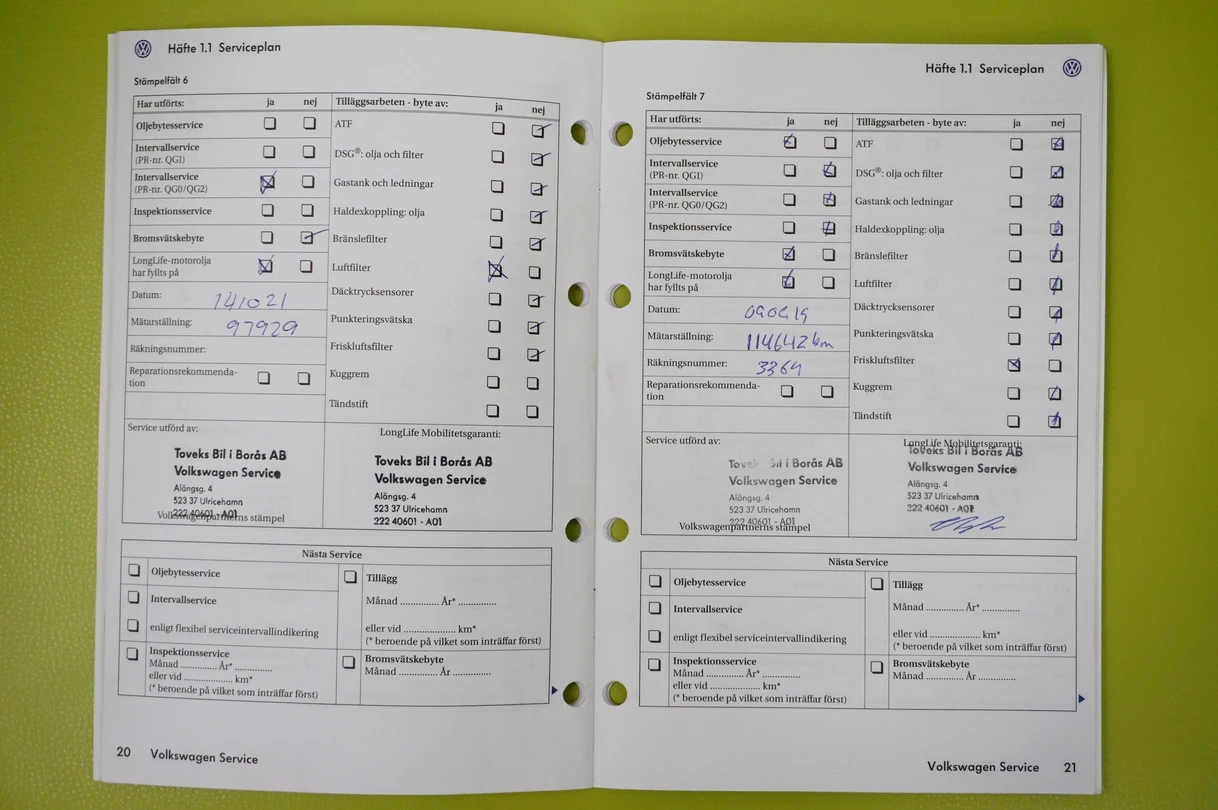 Häfte 1.1 Serviceplan
Stämpelfält 6
Har utförts: ja nej
Oljebytesservice
Intervallservice
(PR-nr. QG1)
Intervallservice
(PR-nr. QG0/QG2)
Inspektionsservice
Bromsvätskebyte
LongLife-motorolja
har fyllts på
Datum: 141021
Mätarställning: 97929
Räkningsnummer:
Reparationsrekommenda-
tion
Tilläggsarbeten - byte av: ja nej
ATF
DSG®: olja och filter
Gastank och ledningar
Haldexkoppling: olja
Bränslefilter
Luftfilter
Däcktrycksensorer
Punkteringsvätska
Friskluftsfilter
Kuggrem
Tändstift
Service utförd av:
Toveks Bil i Borås AB
Volkswagen Service
Alängsg. 4
523 37 Ulricehamn
222 40601 - A01
Volkswagenpartnerns stämpel
LongLife Mobilitetsgaranti:
Toveks Bil i Borås AB
Volkswagen Service
Alängsg. 4
523 37 Ulricehamn
222 40601 - A01
Nästa Service
Oljebytesservice
Intervallservice
enligt flexibel serviceintervallindikering
Inspektionsservice
Månad ............. År* .............
eller vid .................... km*
(* beroende på vilket som inträffar först)
Tillägg
Månad .............. År* ..............
eller vid .................... km*
(* beroende på vilket som inträffar först)
Bromsvätskebyte
Månad .............. År ..............
20 Volkswagen Service
Häfte 1.1 Serviceplan
Stämpelfält 7
Har utförts: ja nej
Oljebytesservice
Intervallservice
(PR-nr. QG1)
Intervallservice
(PR-nr. QG0/QG2)
Inspektionsservice
Bromsvätskebyte
LongLife-motorolja
har fyllts på
Datum:
Mätarställning: 114642 km
Räkningsnummer: 3364
Reparationsrekommenda-
tion
Tilläggsarbeten - byte av: ja nej
ATF
DSG®: olja och filter
Gastank och ledningar
Haldexkoppling: olja
Bränslefilter
Luftfilter
Däcktrycksensorer
Punkteringsvätska
Friskluftsfilter
Kuggrem
Tändstift
Service utförd av:
Toveks Bil i Borås AB
Volkswagen Service
Alängsg. 4
523 37 Ulricehamn
222 40601 - A01
Volkswagenpartnerns stämpel
LongLife Mobilitetsgaranti:
Toveks Bil i Borås AB
Volkswagen Service
Alängsg. 4
523 37 Ulricehamn
222 40601 - A01
Nästa Service
Oljebytesservice
Intervallservice
enligt flexibel serviceintervallindikering
Inspektionsservice
Månad ............. År* .............
eller vid .................... km*
(* beroende på vilket som inträffar först)
Tillägg
Månad .............. År* ..............
eller vid .................... km*
(* beroende på vilket som inträffar först)
Bromsvätskebyte
Månad .............. År ..............
Volkswagen Service 21